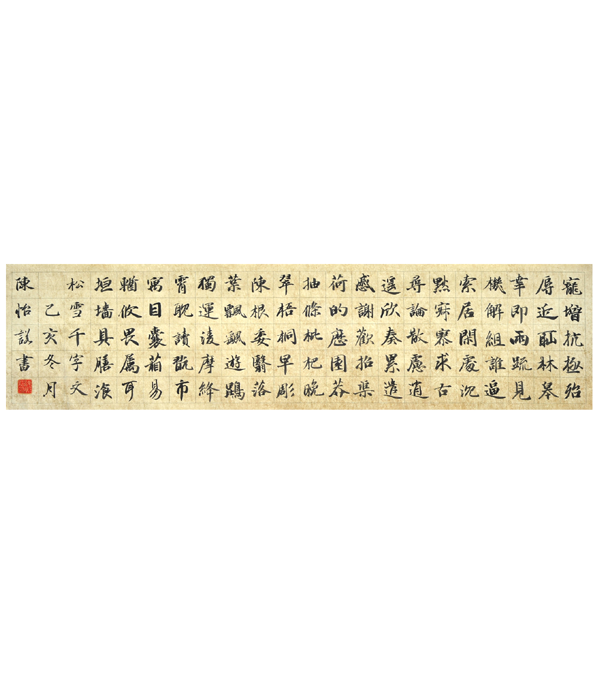 寵增抗極殆
辱近恥林皋
幸即兩疏見
機解組誰逼
索居閑處沉
默寂寥求古
尋論散慮逍
遙欣奏累遣
慼謝歡招渠
荷的歷園莽
抽條枇杷晚
翠梧桐早彫
陳根委翳落
葉飄颻遊鵾
獨運凌摩絳
霄耽讀翫市
寓目囊葙易
輶攸畏属耳
垣墻具膳飡
松雪千字文
己亥冬月
陳怡書